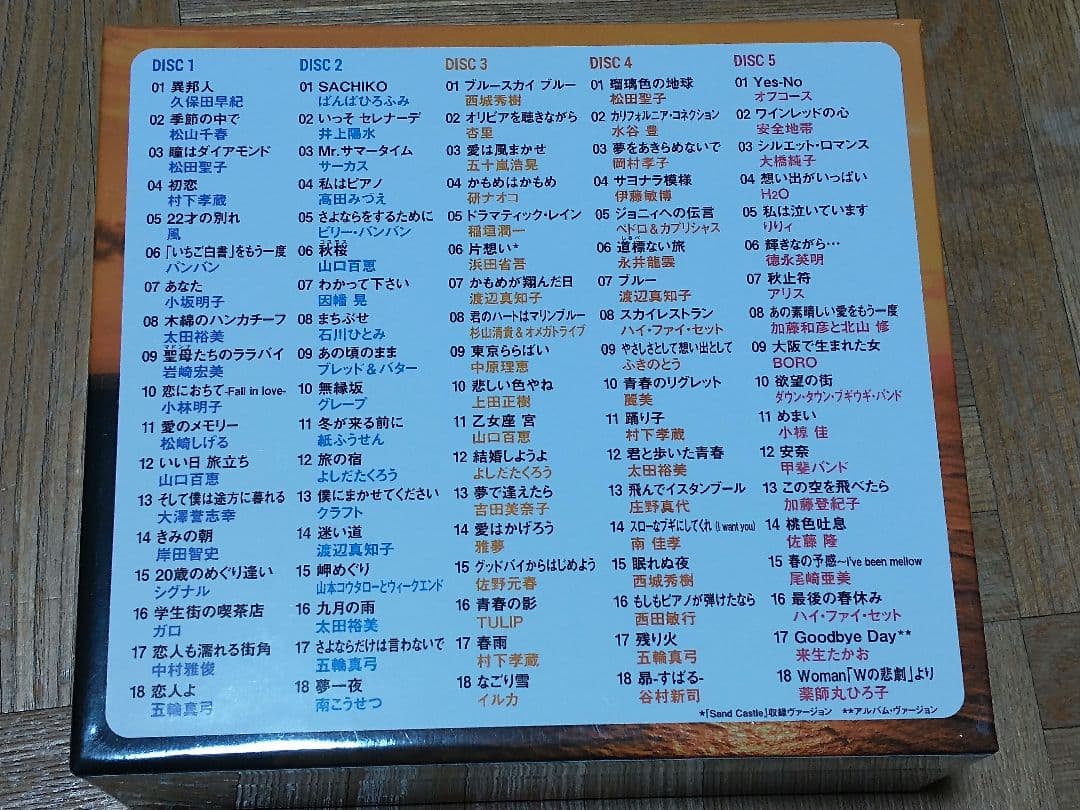 DISC 1
01 異邦人
久保田早紀
02 季節の中で
松山千春
03 瞳はダイアモンド
松田聖子
04 初恋
村下孝蔵
05 22才の別れ
風
06 「いちご白書」をもう一度
バンバン
07 あなた
小坂明子
08 木綿のハンカチーフ
太田裕美
09 聖母たちのララバイ
岩崎宏美
10 恋におちて-Fall in love-
小林明子
11 愛のメモリー
松崎しげる
12 いい日 旅立ち
山口百恵
13 そして僕は途方に暮れる
大澤誉志幸
14 きみの朝
岸田智史
15 20歳のめぐり逢い
シグナル
16 学生街の喫茶店
ガロ
17 恋人も濡れる街角
中村雅俊
18 恋人よ
五輪真弓
DISC 2
01 SACHIKO
ばんばひろふみ
02 いっそ セレナーデ
井上陽水
03 Mr.サマータイム
サーカス
04 私はピアノ
高田みづえ
05 さよならをするために
ビリー・バンバン
06 秋桜
山口百恵
07 わかって下さい
因幡 晃
08 まちぶせ
石川ひとみ
09 あの頃のまま
ブレッド&バター
10 無縁坂
グレープ
11 冬が来る前に
紙ふうせん
12 旅の宿
よしだたくろう
13 僕にまかせてください
クラフト
14 迷い道
渡辺真知子
15 岬めぐり
山本コウタローとウィークエンド
16 九月の雨
太田裕美
17 さよならだけは言わないで
五輪真弓
18 夢一夜
南こうせつ
DISC 3
01 ブルースカイ ブルー
西城秀樹
02 オリビアを聴きながら
杏里
03 愛は風まかせ
五十嵐浩晃
04 かもめはかもめ
研ナオコ
05 ドラマティック・レイン
稲垣潤一
06 片想い*
浜田省吾
07 かもめが翔んだ日
渡辺真知子
08 君のハートはマリンブルー
杉山清貴&オメガトライブ
09 東京ららばい
中原理恵
10 悲しい色やね
上田正樹
11 乙女座 宮
山口百恵
12 結婚しようよ
よしだたくろう
13 夢で逢えたら
吉田美奈子
14 愛はかげろう
雅夢
15 グッドバイからはじめよう
佐野元春
16 青春の影
TULIP
17 春雨
村下孝蔵
18 なごり雪
イルカ
DISC 4
01 瑠璃色の地球
松田聖子
02 カリフォルニア・コネクション
水谷 豊
03 夢をあきらめないで
岡村孝子
04 サヨナラ模様
伊藤敏博
05 ジョニィへの伝言
ペドロ&カプリシャス
06 道標ない旅
永井龍雲
07 ブルー
渡辺真知子
08 スカイレストラン
ハイ・ファイ・セット
09 やさしさとして想い出として
ふきのとう
10 青春のリグレット
麗美
11 踊り子
村下孝蔵
12 君と歩いた青春
太田裕美
13 飛んでイスタンブール
庄野真代
14 スローなブギにしてくれ (I want you)
南 佳孝
15 眠れぬ夜
西城秀樹
16 もしもピアノが弾けたなら
西田敏行
17 残り火
五輪真弓
18 昴-すばる-
谷村新司
DISC 5
01 Yes-No
オフコース
02 ワインレッドの心
安全地帯
03 シルエット・ロマンス
大橋純子
04 想い出がいっぱい
H2O
05 私は泣いています
りりィ
06 輝きながら…
徳永英明
07 秋止符
アリス
08 あの素晴しい愛をもう一度
加藤和彦と北山 修
09 大阪で生まれた女
BORO
10 欲望の街
ダウン・タウン・ブギウギ・バンド
11 めまい
小椋 佳
12 安奈
甲斐バンド
13 この空を飛べたら
加藤登紀子
14 桃色吐息
佐藤 隆
15 春の予感〜I've been mellow
尾崎亜美
16 最後の春休み
ハイ・ファイ・セット
17 Goodbye Day**
来生たかお
18 Woman「Wの悲劇」より
薬師丸ひろ子
*「Sand Castle」収録ヴァージョン **アルバム・ヴァージョン